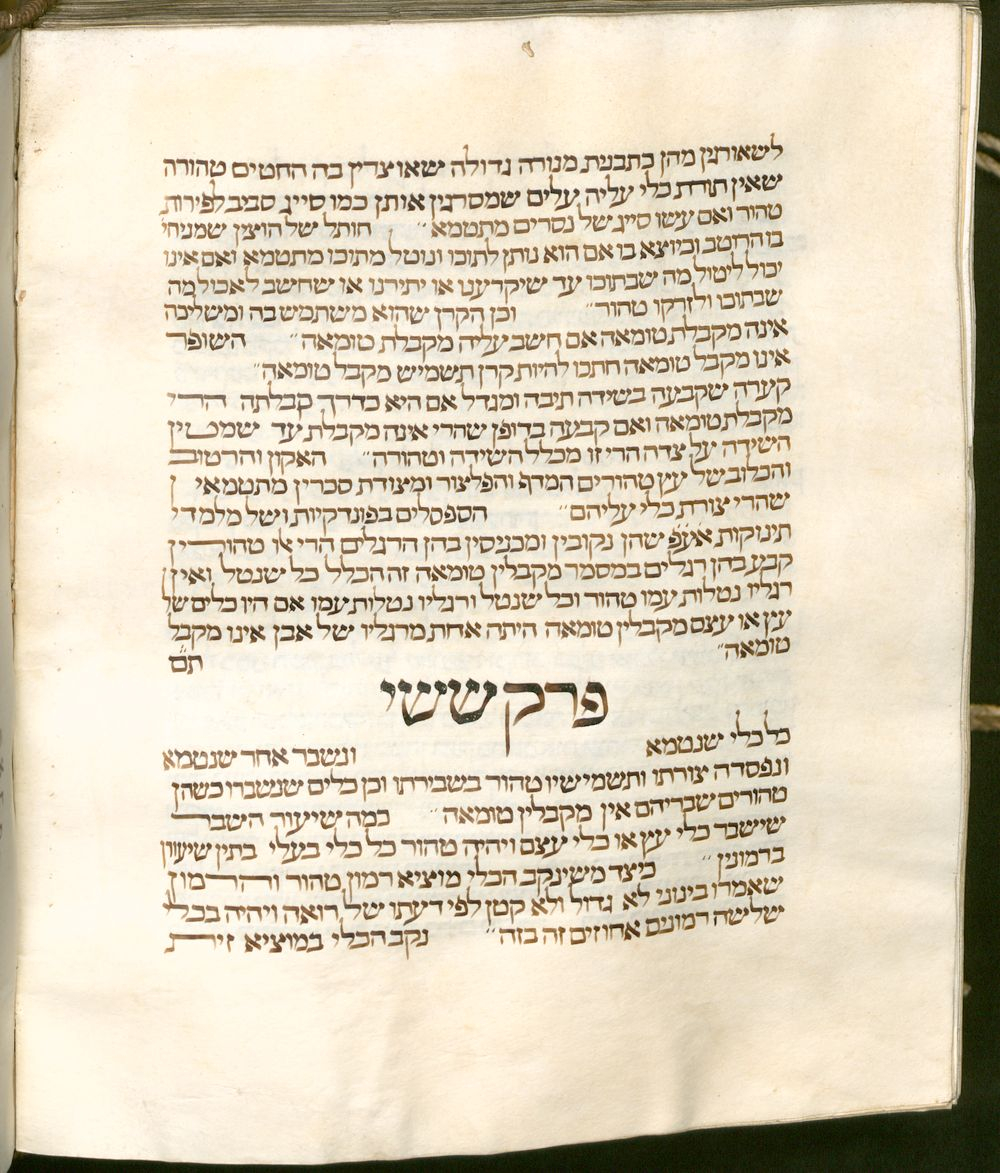 לשאורגין מהן כתבנית מנורה גדולה שאוצרין בה החטים טהורה
שאין תורת כלי עליה עלים שמסרגין אותן כמו סייג סביב לפירות
טהור ואם עשו סייג של נסרים מתטמא״ חותל של הוצין שמניחי
בו הרוטב וכיוצא בו אם הוא נותן לתוכו ונוטל מתוכו מתטמא ואם אינו
יכול ליטול מה שבתוכו עד שיקרענו או יתירנו או שחשב לאכול מה
שבתוכו ולזרקו טהור״ וכן הקרן שהוא משתמש בה ומשליכה
אינה מקבלת טומאה אם חשב עליה מקבלת טומאה״ השופר
אינו מקבל טומאה חתכו להיות קרן תשמיש מקבל טומאה״
קערה שקבעה בשידה תיבה ומגדל אם היא כדרך קבלתה הרי
מקבלת טומאה ואם קבעה בדופן שהרי אינה מקבלת עד שמטין
השידה על צדה הרי זו מכלל השידה וטהורה״ האקון והרטוב
והכלוב של עץ טהורים המדף והפלצור ומצודת סכרין מתטמאין
שהרי צורת כלי עליהם״ הספסלים בפונדקיות ושל מלמדי
תינוקות אע״פ שהן נקובין ומכניסין בהן הרגלים הרי אלו טהורין
קבע בהן רגלים במסמר מקבלין טומאה זה הכלל כל שנטל ואין
רגליו נטלות עמו טהור וכל שנטל ורגליו נטלות עמו אם היו כלים של
עץ או עצם מקבלין טומאה היתה אחת מרגליו של אבן אינו מקבל
טומאה״ תם
פרק ששי
כל כלי שנטמא ונשבר אחר שנטמא
ונפסדה צורתו ותשמישיו טהור בשבירתו וכן כלים שנשברו כשהן
טהורים שבריהם אין מקבלין טומאה״ כמה שיעור השבר
שישבר כלי עץ או כלי עצם ויהיה טהור כל כלי בעלי בתין שיעורן
ברמונין״ כיצד משינקב הכלי מוציא רמון טהור והרמון
שאמרו בינוני לא גדול ולא קטן לפי דעתו של רואה ויהיה בכלי
שלישה רמונים אחוזים זה בזה״ נקב הכלי במוציא זית